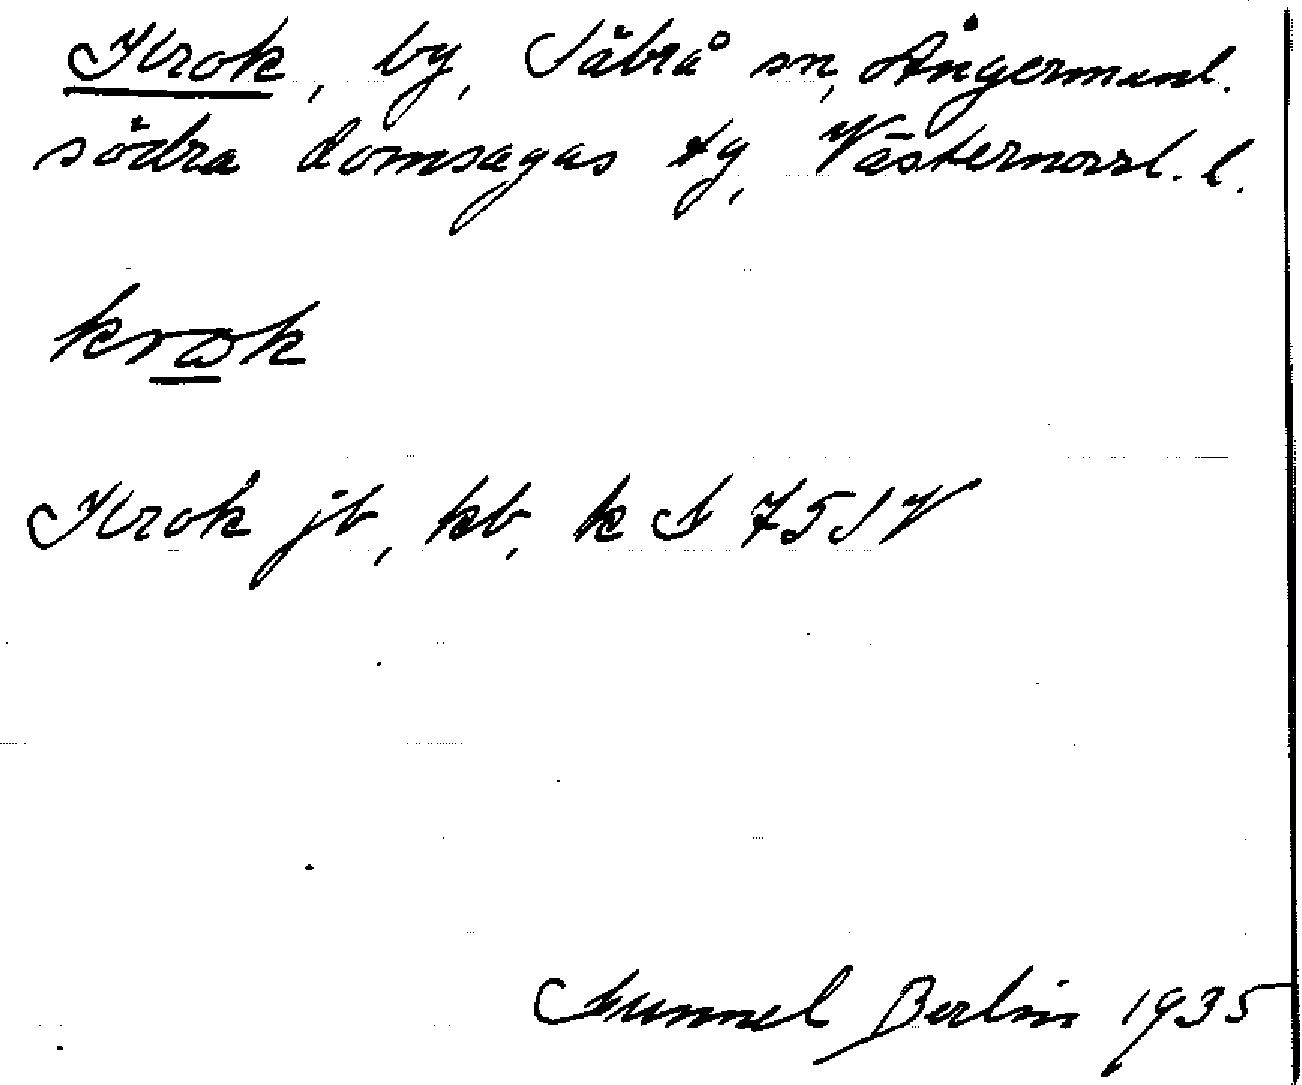 Krok, by, Säbrå sn, Ångermanl.
södra domsagas tg, Västernorrl. l.
krok
Krok jb, kb, k A 75 I V
Gunnel Berlin 1935